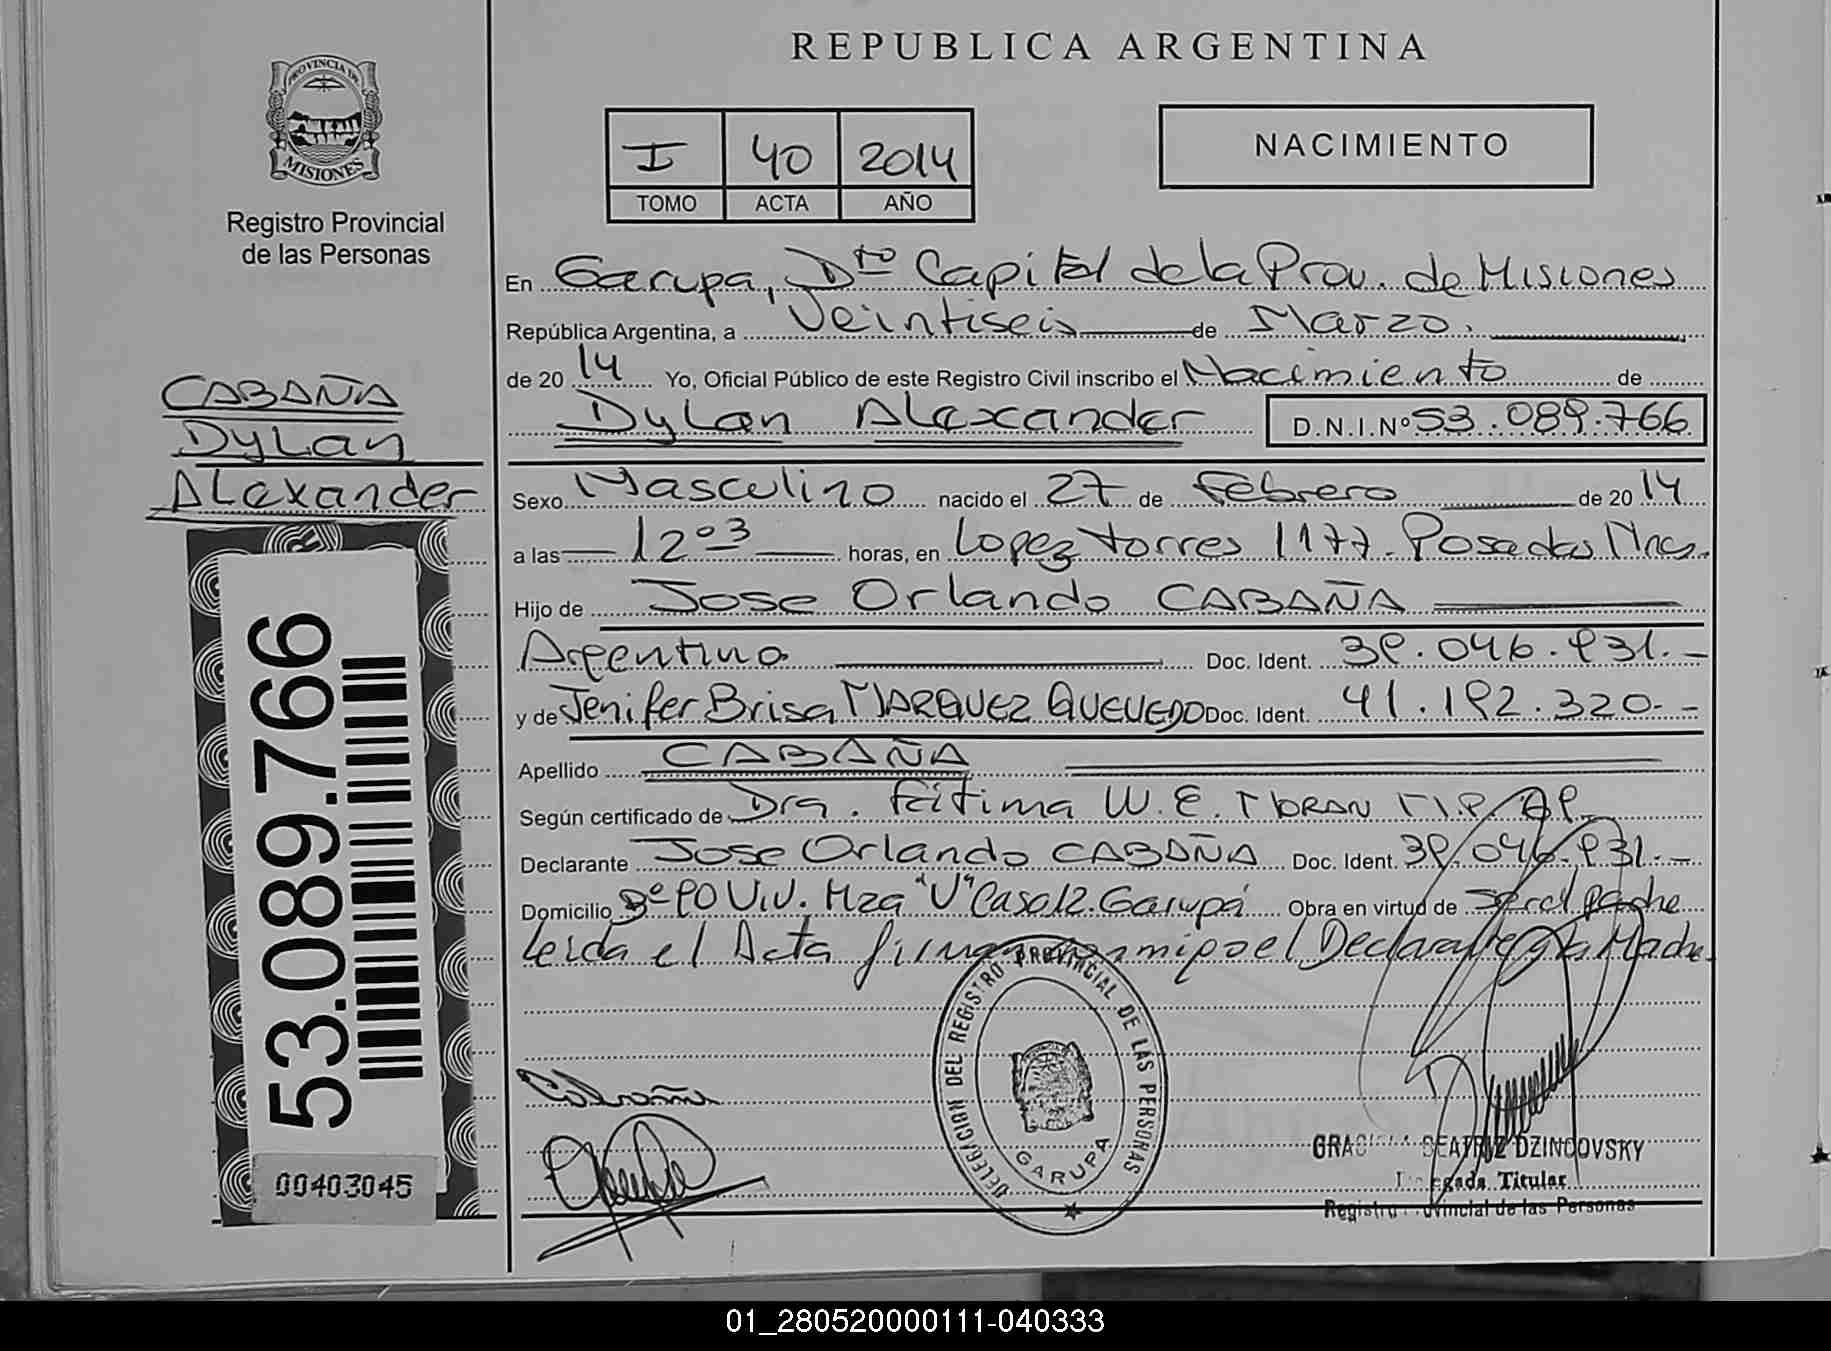 REPUBLICA ARGENTINA
PROVINCIA DE
MISIONES
Registro Provincial
de las Personas
I 40 2014
TOMO ACTA AÑO
NACIMIENTO
En Garupa, Dto Capital de la Prov. de Misiones
República Argentina, a Veintiseis de Marzo.
de 20 14 Yo, Oficial Público de este Registro Civil inscribo el Nacimiento de
Dylan Alexander D.N.I.Nº 53.089.766
CABAÑA
DyLan
ALexander
Sexo Masculino nacido el 27 de Febrero de 20 14
a las 12º3 horas, en Lopez Torres 1177. Posadas Mnes.
Hijo de Jose Orlando CABAÑA
Argentino Doc. Ident. 39.046.931.-
y de Jenifer Brisa MARQUEZ QUEVEDO Doc. Ident. 41.192.320.-
Apellido CABAÑA
Según certificado de Dra. Fátima W.E. MORAN M.P.
Declarante Jose Orlando CABAÑA Doc. Ident. 39.046.931.-
Domicilio Viv. Mza "V" Casa 12. Garupá Obra en virtud de ser el padre
Leida el Acta firman el Declarante y la Madre.
53.089.766
00403045
Cabaña
DELEGACION DEL REGISTRO PROVINCIAL DE LAS PERSONAS
GARUPA
BEATRIZ DZINCOVSKY
Titular
de las Personas
01_280520000111-040333